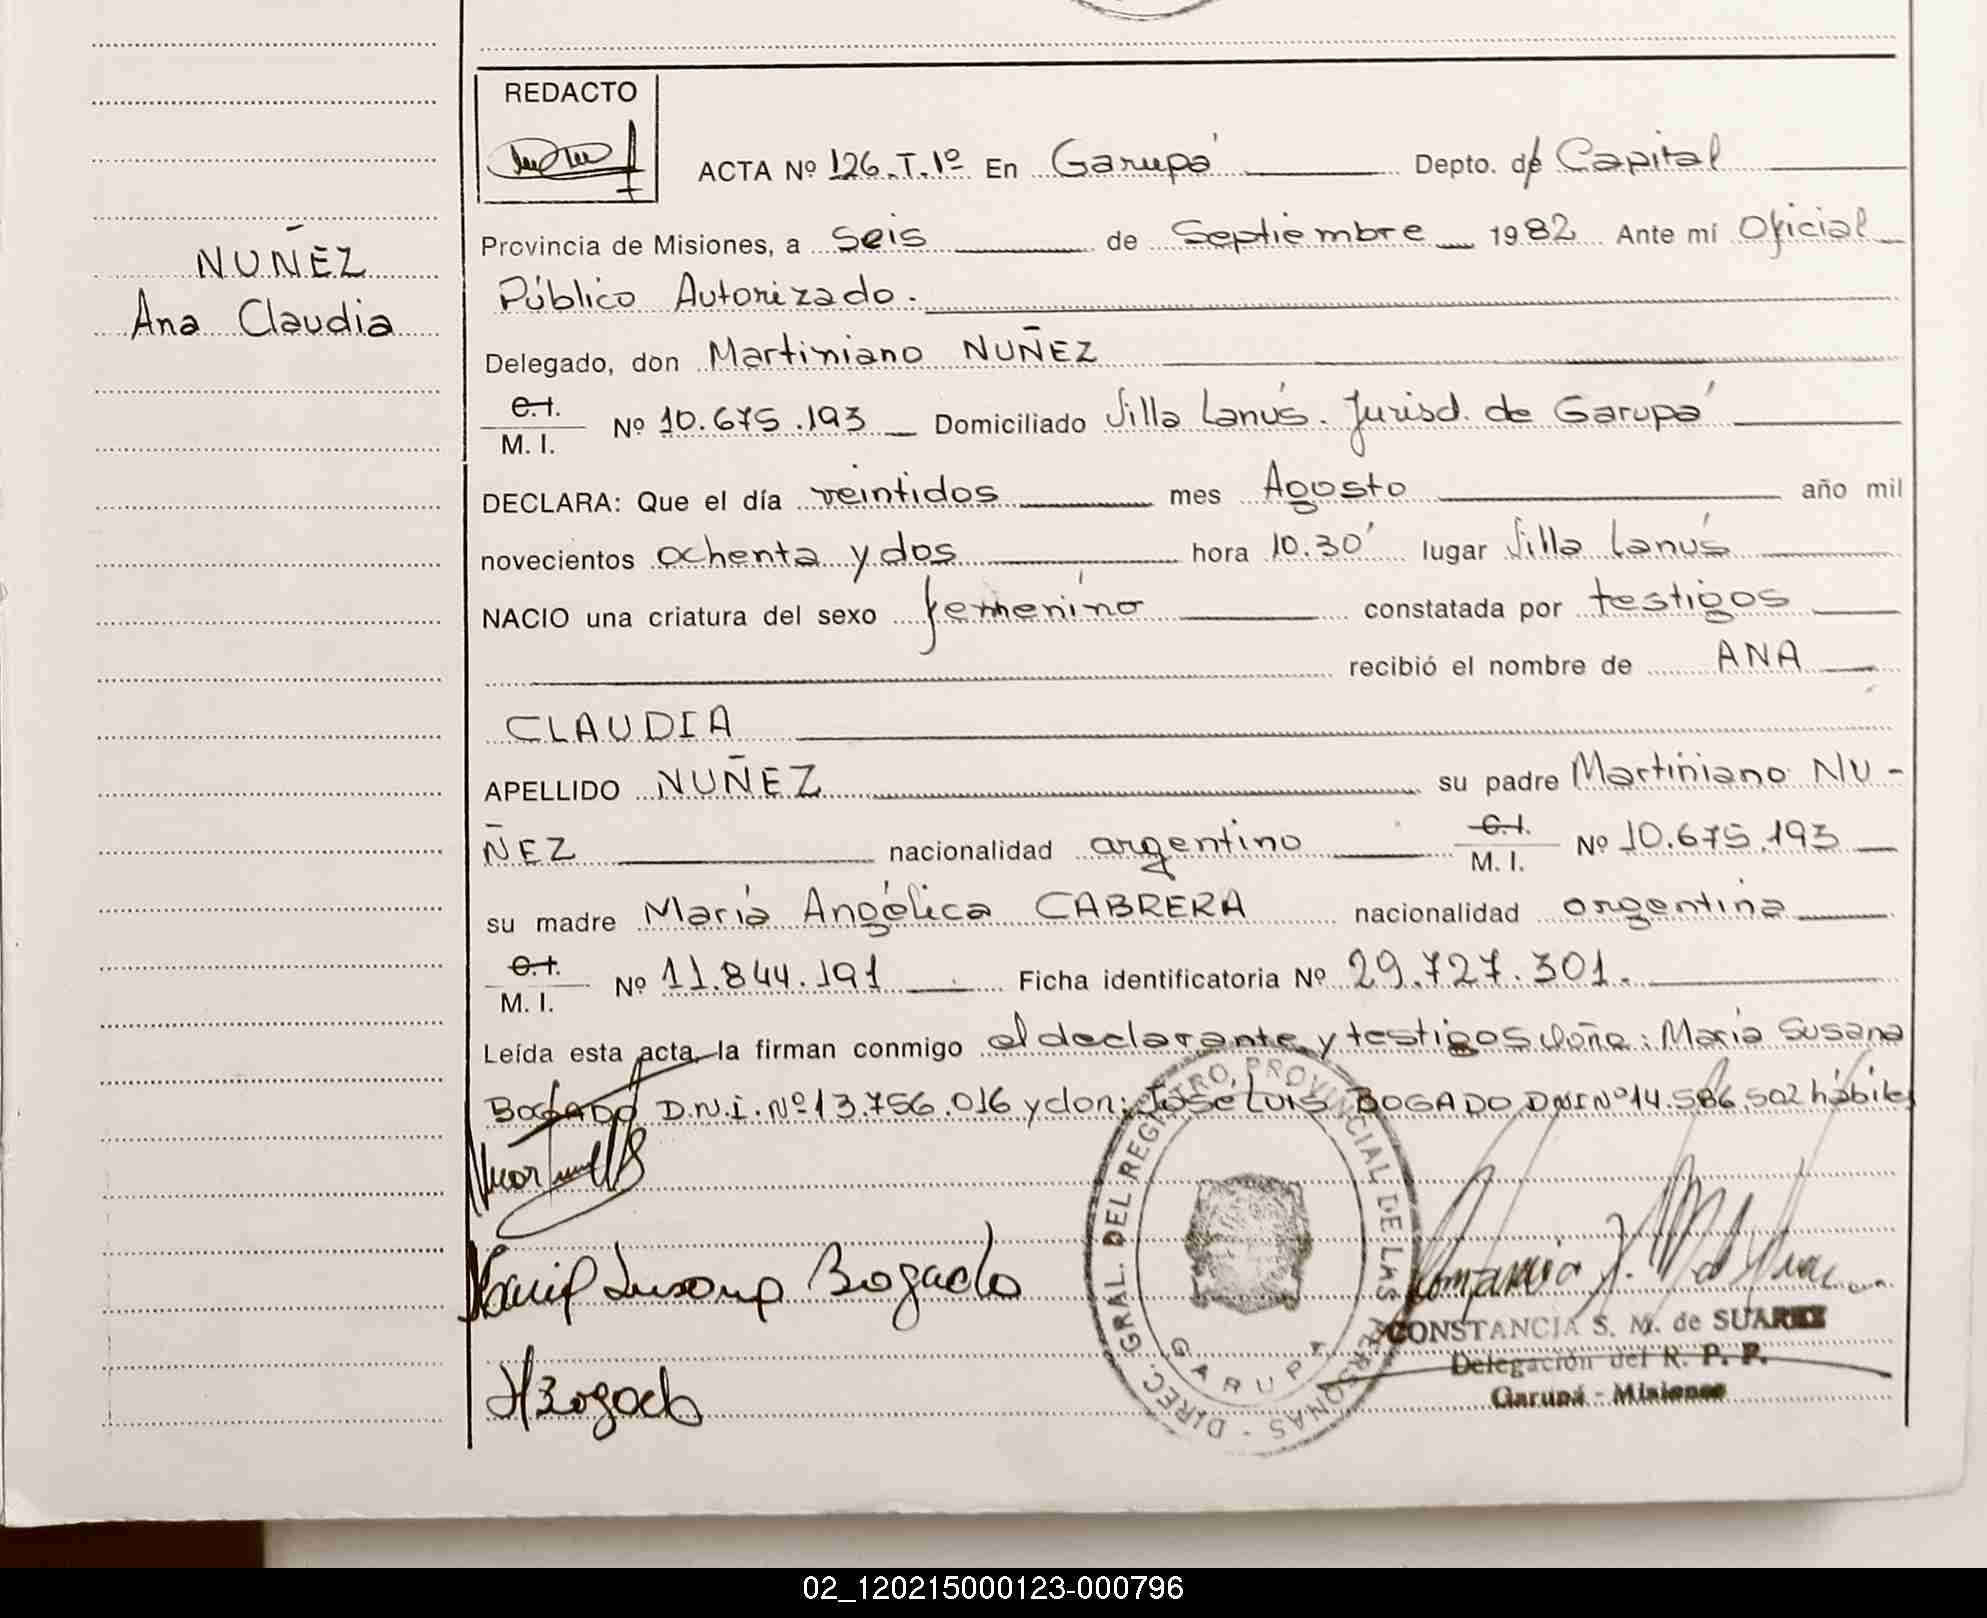 REDACTO
ACTA Nº 126.T.1º En Garupá Depto. de Capital
NUÑEZ
Ana Claudia
Provincia de Misiones, a seis de Septiembre 1982 Ante mí Oficial
Público Autorizado.
Delegado, don Martiniano NUÑEZ
C.I.
M. I. Nº 10.675.193 Domiciliado Villa Lanús. Jurisd. de Garupá
DECLARA: Que el día veintidos mes Agosto año mil
novecientos ochenta y dos hora 10.30' lugar Villa Lanús
NACIO una criatura del sexo femenino constatada por testigos
recibió el nombre de ANA
CLAUDIA
APELLIDO NUÑEZ su padre Martiniano NU-
ÑEZ nacionalidad argentino C.I. M. I. Nº 10.675.193
su madre María Angélica CABRERA nacionalidad argentina
C.I.
M. I. Nº 11.844.191 Ficha identificatoria Nº 29.727.301.
Leída esta acta, la firman conmigo el declarante y testigos doña: María Susana
BOGADO D.N.I. Nº 13.756.016 y don: José Luis BOGADO DNI Nº 14.586.502 hábiles
María Susana Bogado
DIREC. GRAL. DEL REGISTRO PROVINCIAL DE LAS PERSONAS -
GARUPA
CONSTANCIA S. M. de SUAREZ
Delegación del R. P. P.
Garupá - Misiones
02_120215000123-000796